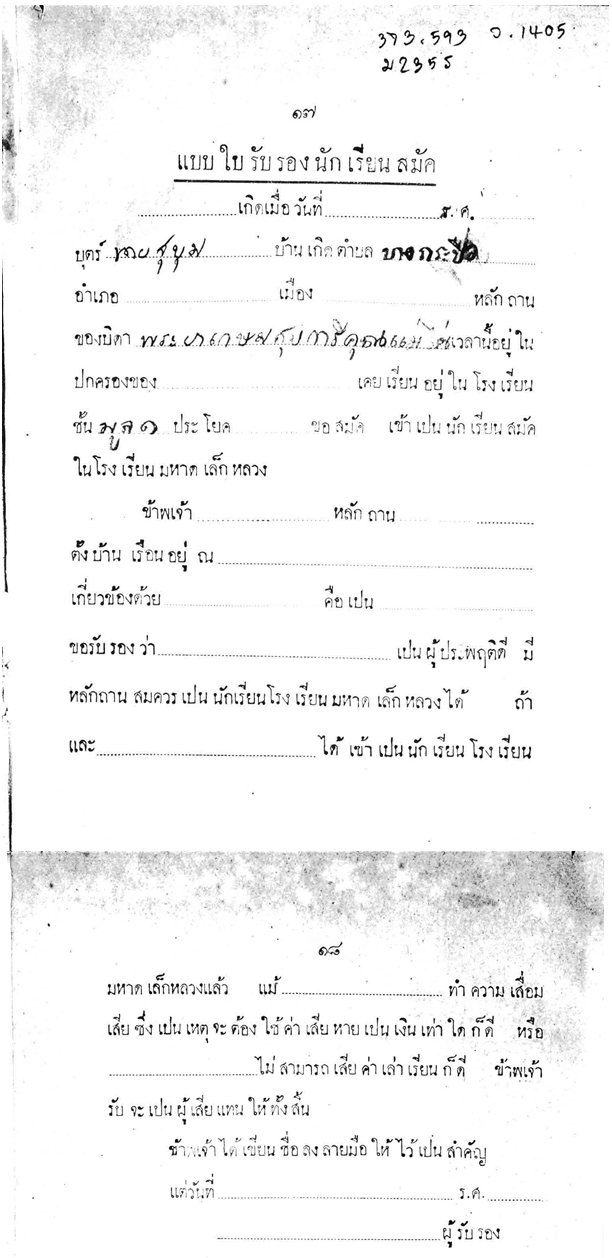 373.593 ว.1405
ม235ร
๑๗
แบบ ใบ รับ รอง นัก เรียน สมัค
เกิดเมื่อ วันที่ ร.ศ.
บุตร์ นายสุขุม บ้าน เกิด ตำบล บางกระบือ
อำเภอ เมือง หลัก ถาน
ของบิดา เวลานี้อยู่ ใน
ปกครองของ เคย เรียน อยู่ ใน โรง เรียน
ชั้น มูล ๑ ประ โยค ขอ สมัค เข้า เปน นัก เรียน สมัค
ในโรง เรียน มหาด เล็ก หลวง
ข้าพเจ้า หลัก ถาน
ตั้ง บ้าน เรือน อยู่ ณ
เกี่ยวข้องด้วย คือ เปน
ขอรับ รอง ว่า เปน ผู้ ประพฤติดี มี
หลักถาน สมควร เปน นักเรียนโรง เรียน มหาด เล็ก หลวง ได้ ถ้า
และ ได้ เข้า เปน นัก เรียน โรง เรียน
๑๘
มหาด เล็กหลวงแล้ว แม้ ทำ ความ เสื่อม
เสีย ซึ่ง เปน เหตุ จะ ต้อง ใช้ ค่า เสีย หาย เปน เงิน เท่า ใด ก็ ดี หรือ
ไม่ สามารถ เสีย ค่า เล่า เรียน ก็ ดี ข้าพเจ้า
รับ จะ เปน ผู้ เสีย แทน ให้ ทั้ง สิ้น
ข้าพเจ้า ได้ เขียน ชื่อ ลง ลายมือ ให้ ไว้ เปน สำคัญ
แต่วันที่ ร.ศ.
ผู้ รับ รอง